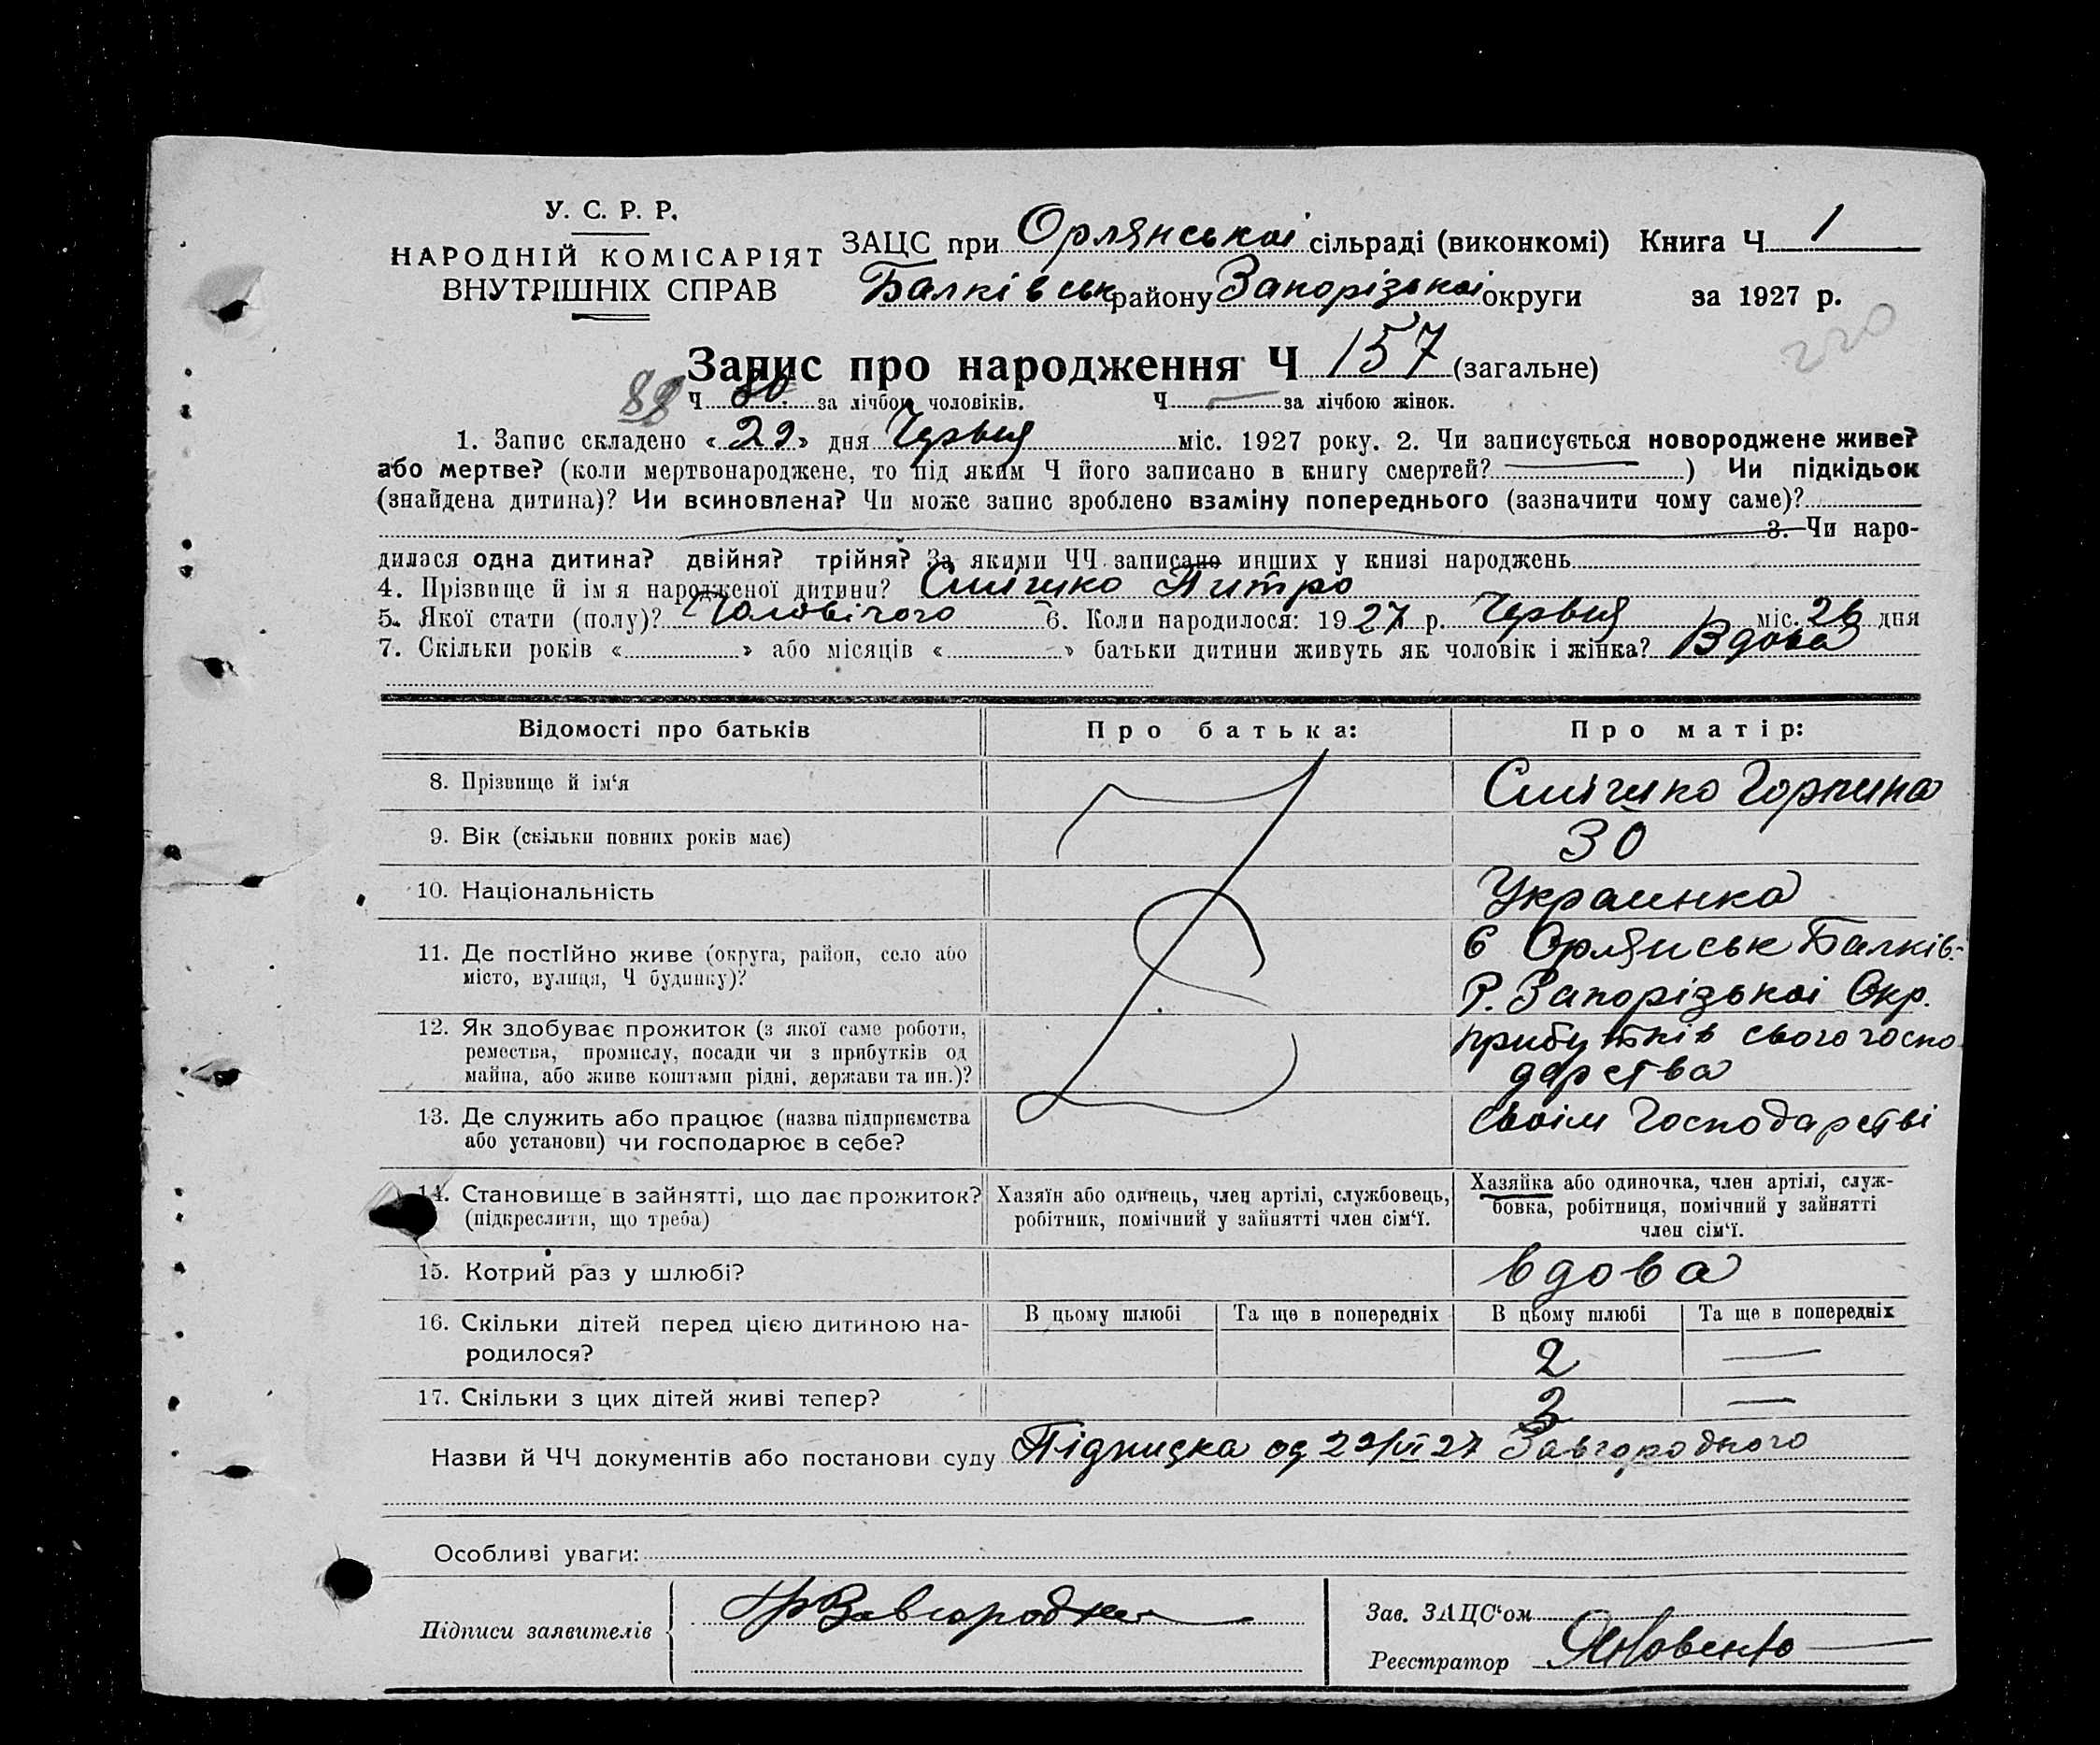 У. С. Р. Р.
НАРОДНІЙ КОМІСАРІЯТ
ВНУТРІШНІХ СПРАВ
ЗАЦС при Орлянської сільраді (виконкомі) Книга Ч 1
Балківськ району Запорізької округи за 1927 р.
220
Запис про народження Ч 157 (загальне)
88 Ч 80 за лічбою чоловіків. Ч — за лічбою жінок.
1. Запис складено « 29 » дня Червня міс. 1927 року. 2. Чи записується новороджене живе?
або мертве? (коли мертвонароджене, то під яким Ч його записано в книгу смертей? ) Чи підкідьок
(знайдена дитина)? Чи всиновлена? Чи може запис зроблено взаміну попереднього (зазначити чому саме)?
3. Чи наро-
дилася одна дитина? двійня? трійня? За якими ЧЧ записано инших у книзі народжень
4. Прізвище й ім я народженої дитини? Смігинко Питро
5. Якої стати (полу)? Чоловічого 6. Коли народилося: 1927 р. Червня міс. 26 дня
7. Скільки років « » або місяців « » батьки дитини живуть як чоловік і жінка? Вдова
Відомості про батьків Про батька: Про матір:
8. Прізвище й ім‘я Горпина
9. Вік (скільки повних років має) 30
10. Національність Украинка
11. Де постійно живе (округа, район, село або
місто, вулиця, Ч будинку)?
с Орлянськ Балків-
Р. Запорізької Окр.
12. Як здобуває прожиток (з якої саме роботи,
ремества, промислу, посади чи з прибутків од
майна, або живе коштами рідні, держави та ин.)?
прибутків свого госпо
дарства
13. Де служить або працює (назва підприємства
або установи) чи господарює в себе?
своім Господарстві
14. Становище в зайнятті, що дає прожиток?
(підкреслити, що треба)
Хазяїн або одинець, член артілі, службовець,
робітник, помічний у зайнятті член сім‘ї.
Хазяйка або одиночка, член артілі, служ-
бовка, робітниця, помічний у зайнятті
член сім‘ї.
15. Котрий раз у шлюбі? вдова
В цьому шлюбі Та ще в попередніх В цьому шлюбі Та ще в попередніх
16. Скільки дітей перед цією дитиною на-
родилося? 2 —
17. Скільки з цих дітей живі тепер? —
Назви й ЧЧ документів або постанови суду Підписка од 29/VI 27 Завгороднего
Особливі уваги:
Підписи заявителів
Зав. ЗАЦС‘ом
Реєстратор